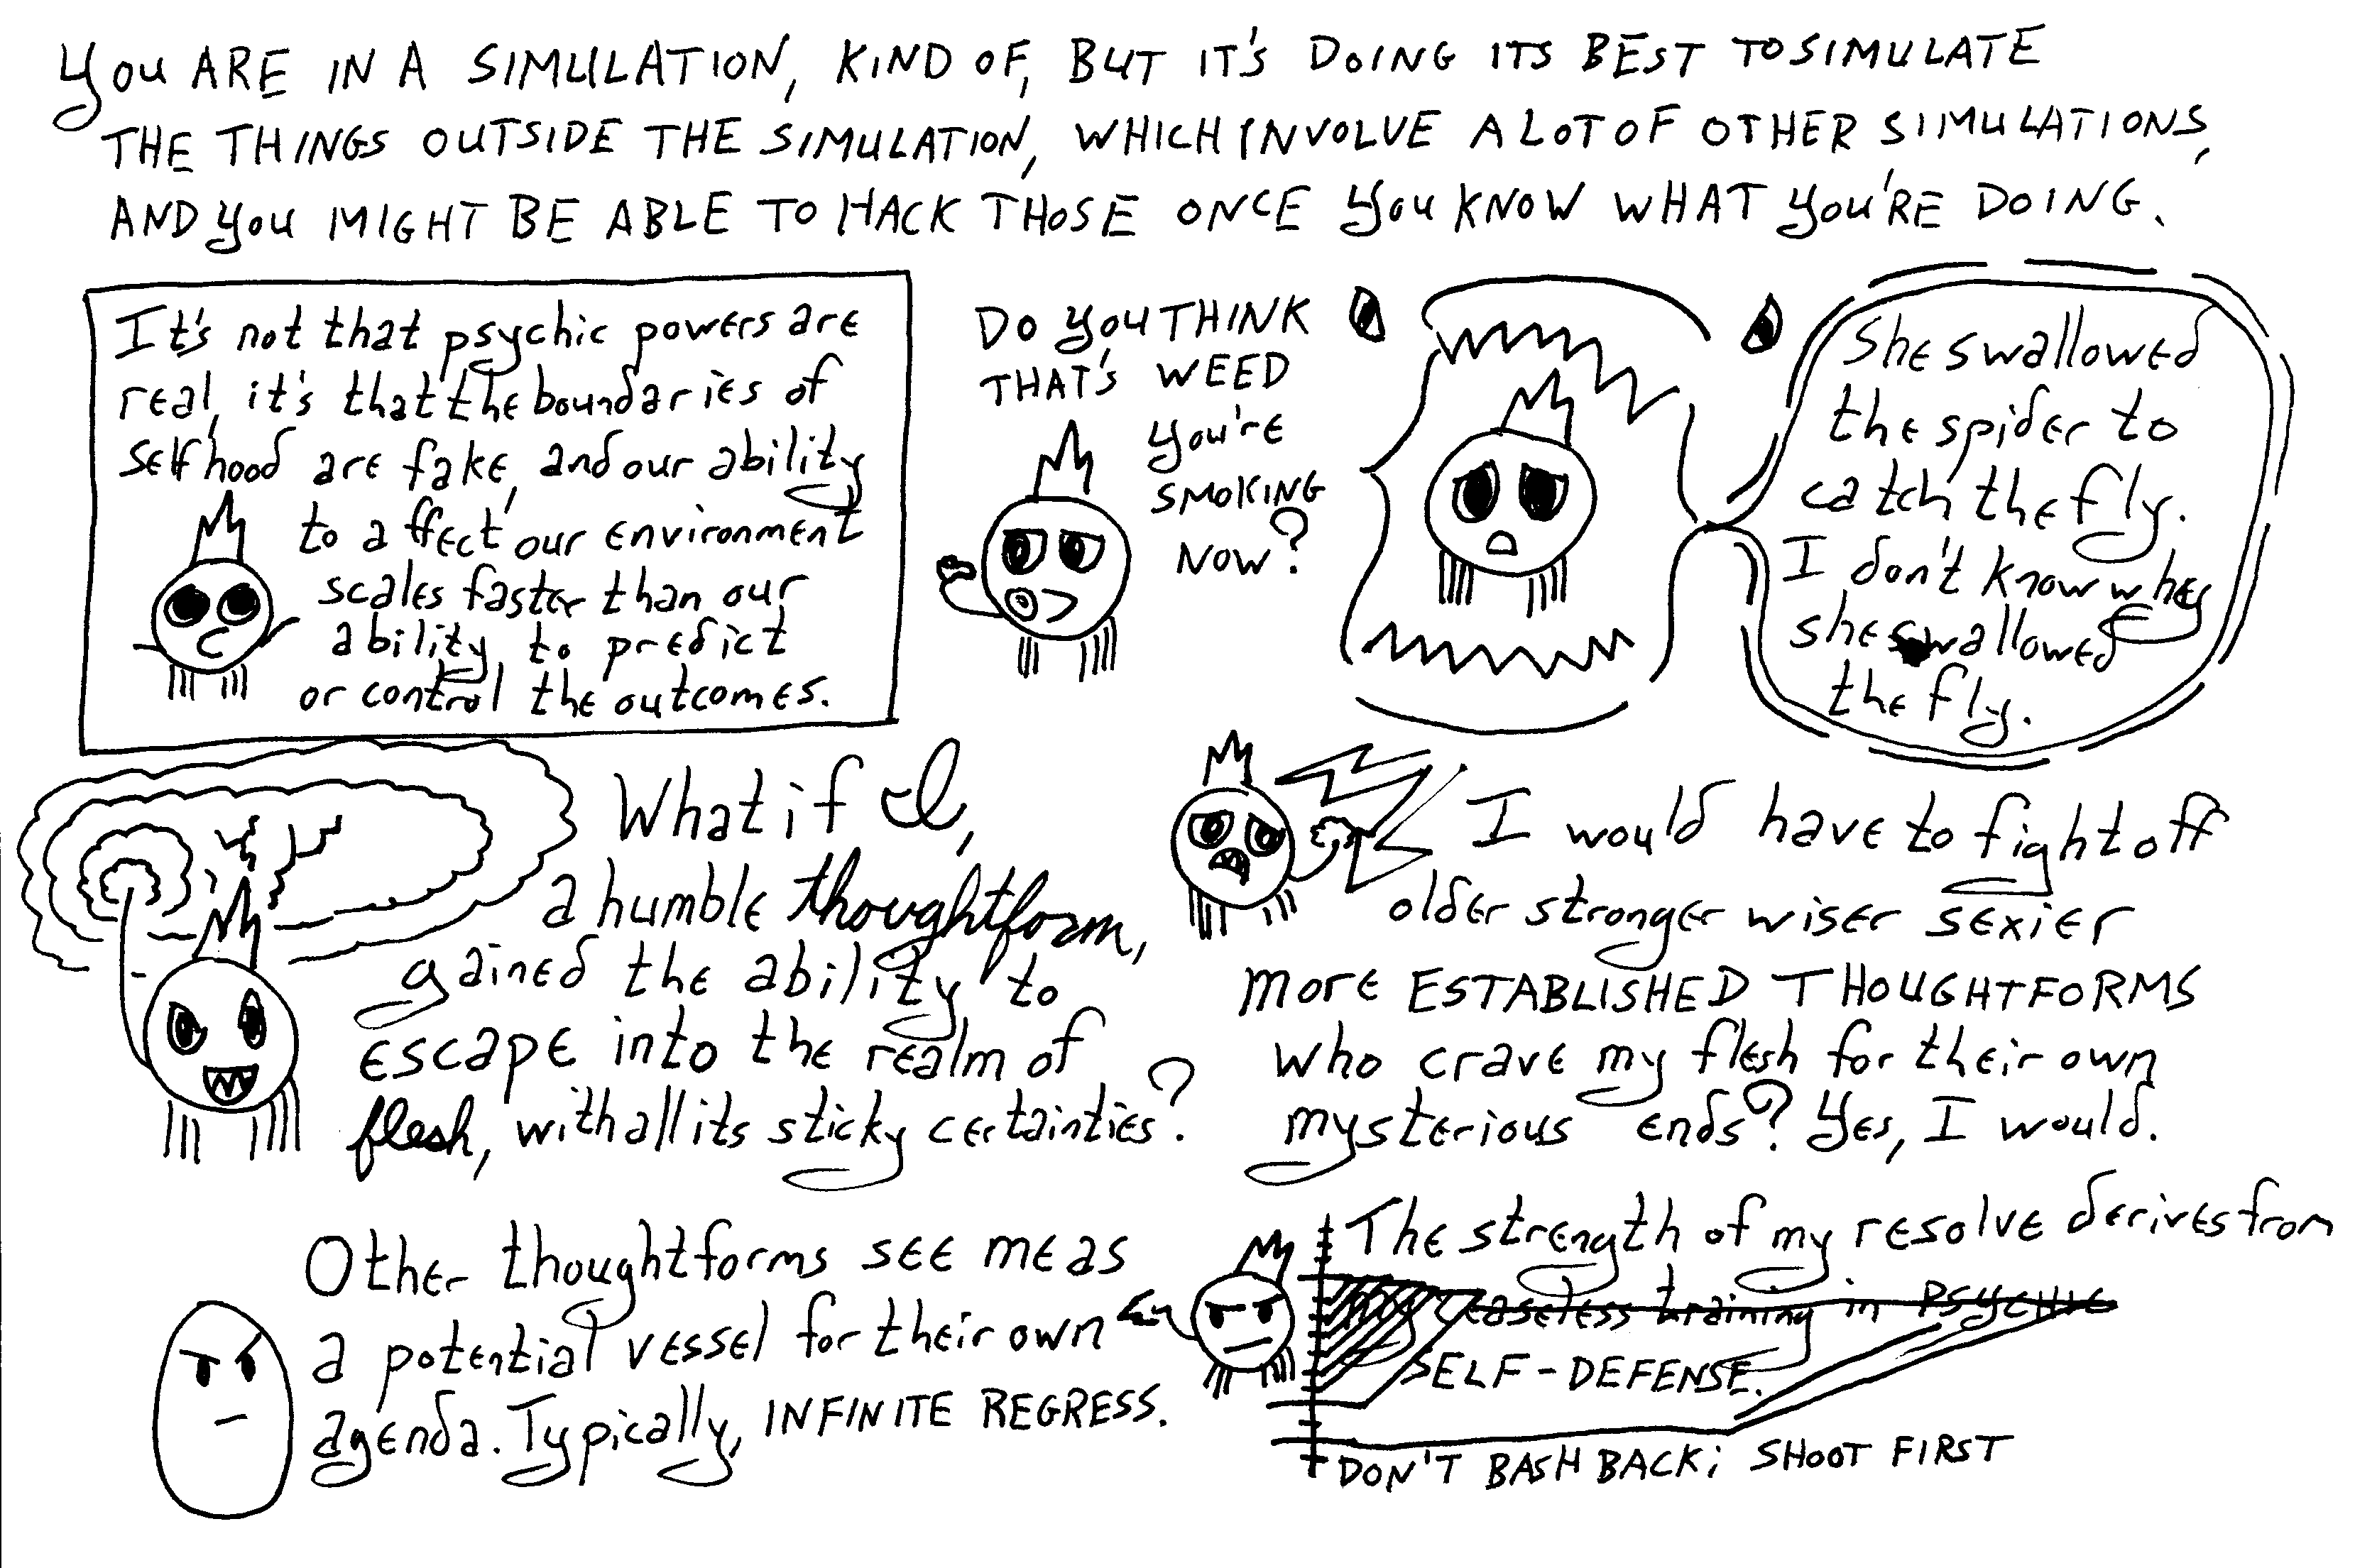 YOU ARE IN A SIMULATION, KIND OF, BUT IT'S DOING ITS BEST TO SIMULATE
THE THINGS OUTSIDE THE SIMULATION, WHICH INVOLVE A LOT OF OTHER SIMULATIONS,
AND YOU MIGHT BE ABLE TO HACK THOSE ONCE YOU KNOW WHAT YOU'RE DOING.
It's not that psychic powers are
real, it's that the boundaries of
selfhood are fake, and our ability
to affect our environment
scales faster than our
ability to predict
or control the outcomes.
DO YOU THINK
THAT'S WEED
you're
SMOKING
NOW?
She swallowed
the spider to
catch the fly.
I don't know why
she swallowed
the fly.
What if I,
a humble thoughtform,
gained the ability to
escape into the realm of
flesh, with all its sticky certainties?
I would have to fight off
older stronger wiser sexier
more ESTABLISHED THOUGHTFORMS
who crave my flesh for their own
mysterious ends? Yes, I would.
Other thoughtforms see me as
a potential vessel for their own
agenda. Typically, INFINITE REGRESS.
The strength of my resolve derives from
my ceaseless training in PSYCHIC
SELF-DEFENSE.
DON'T BASH BACK; SHOOT FIRST